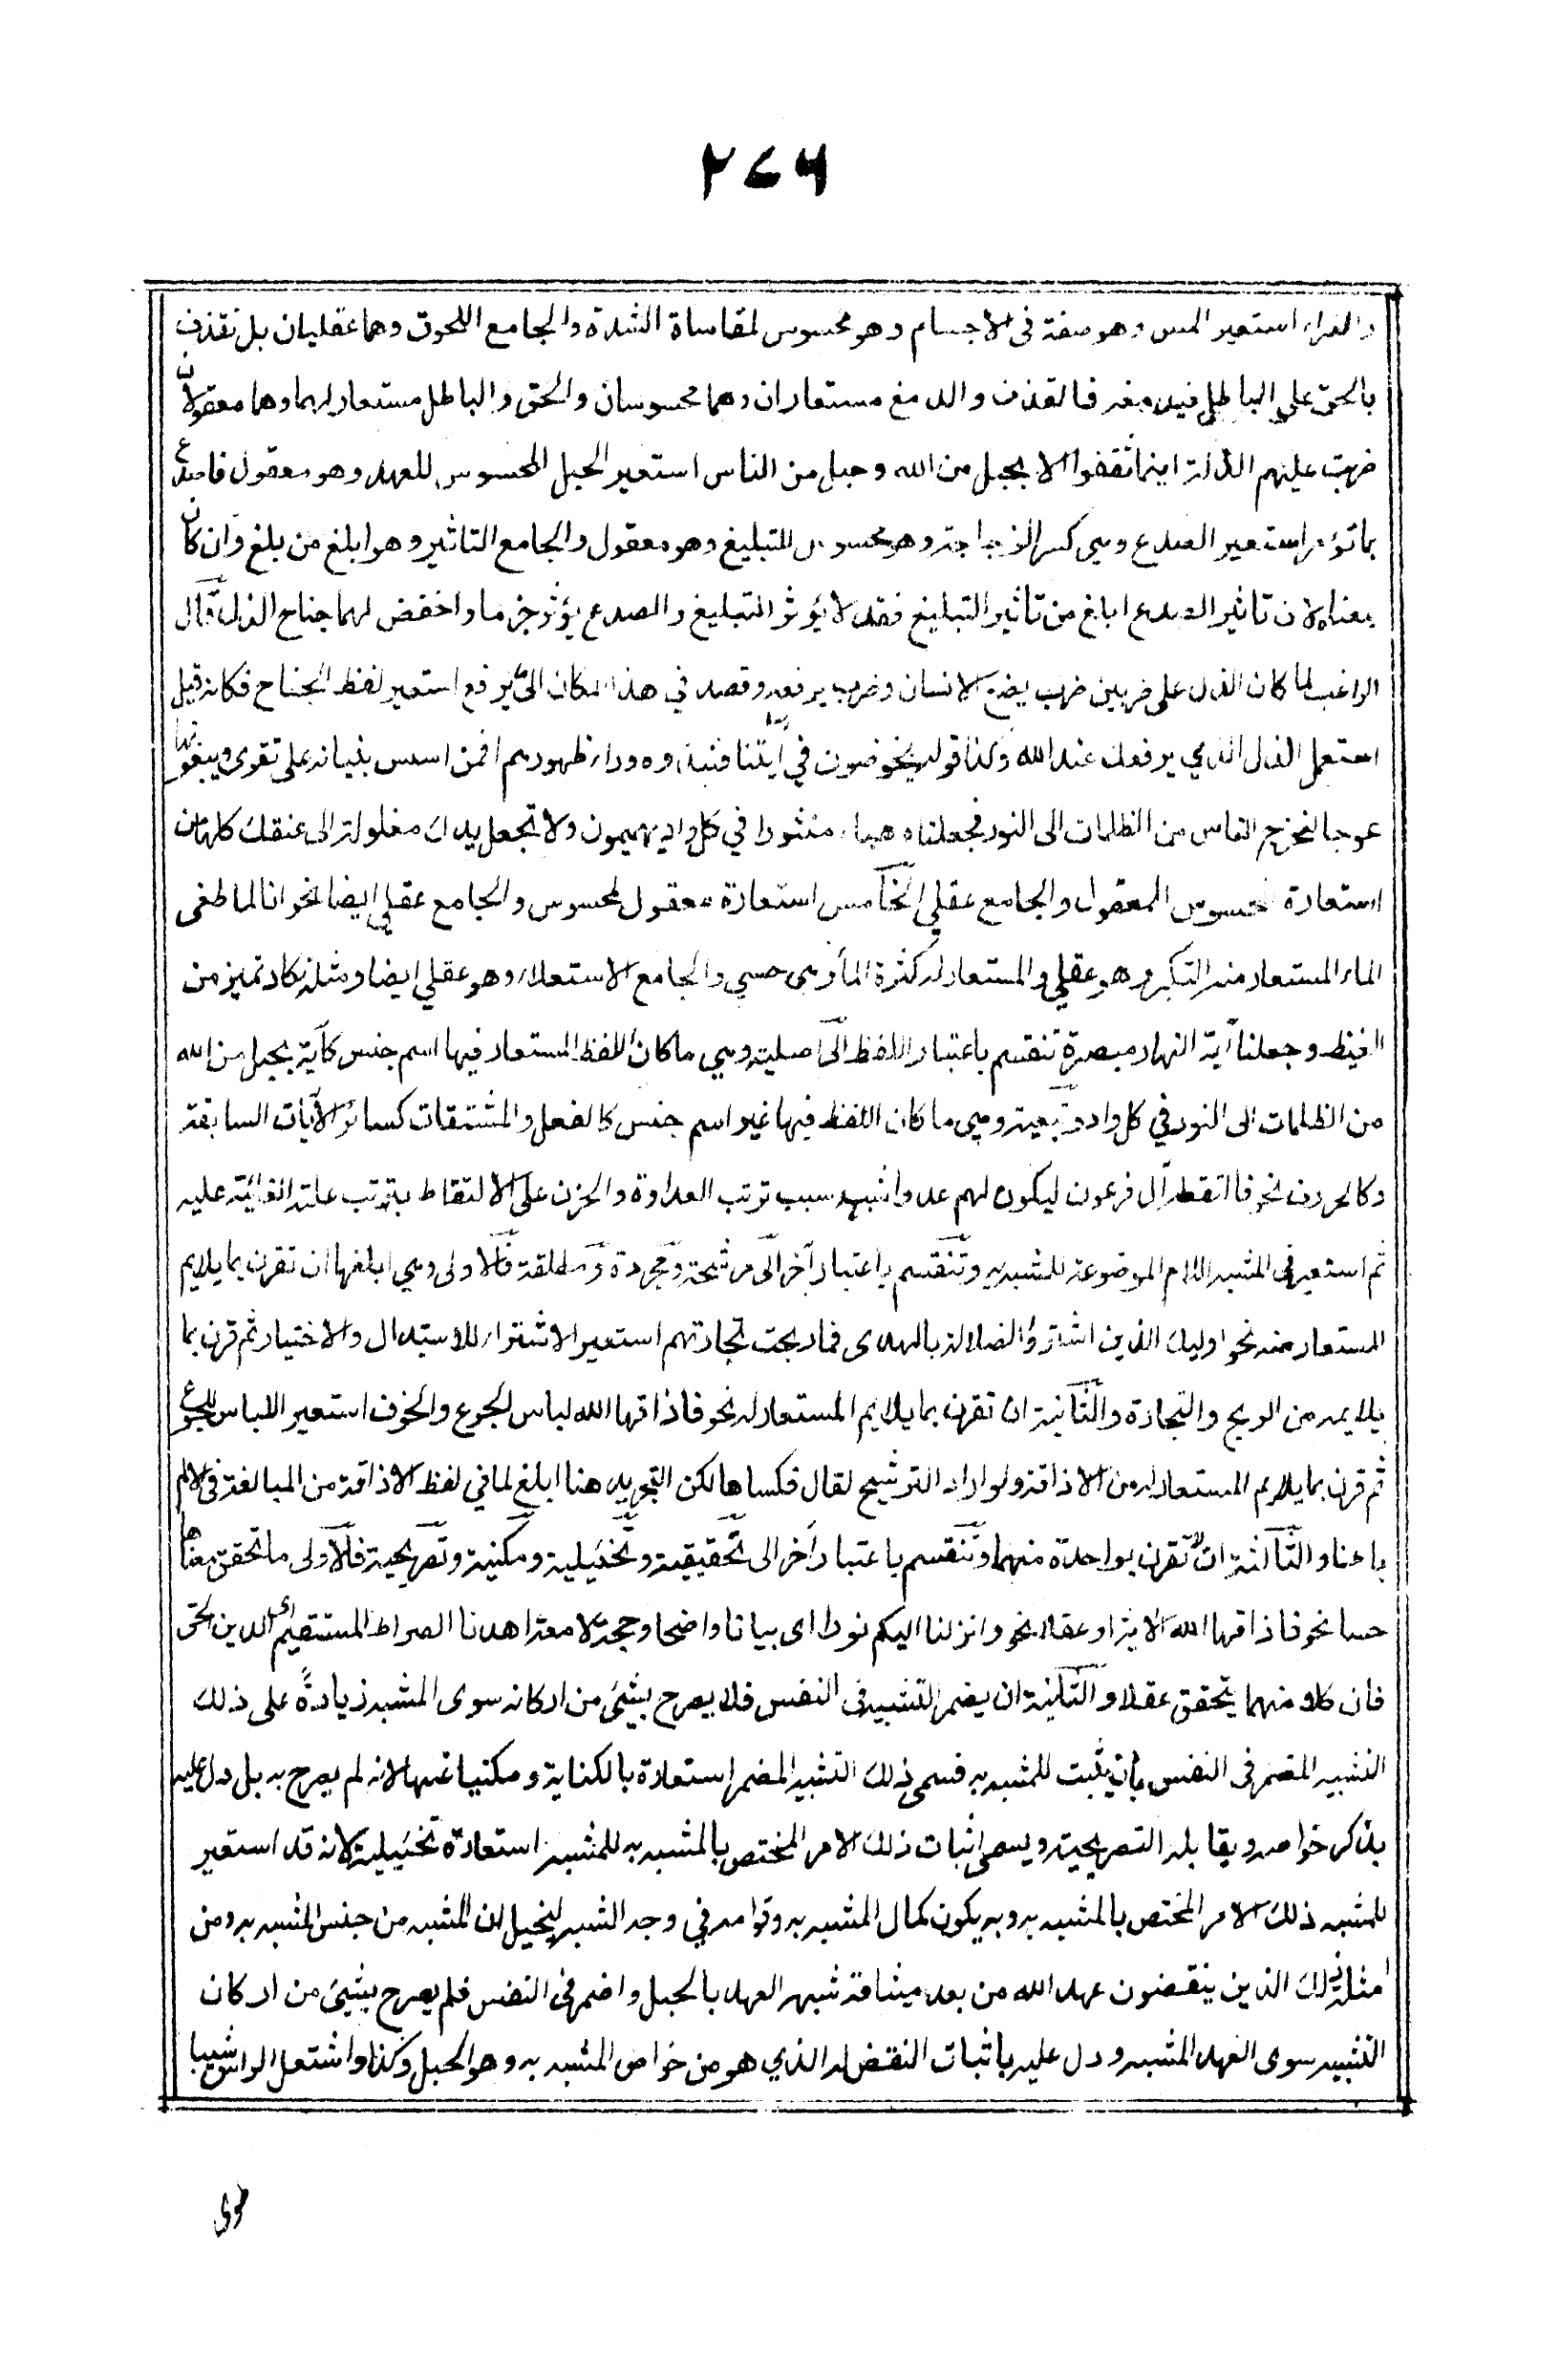 ٢٧٦
والضراء استعير المس وهو صفة في الاجسام وهو محسوس لمقاساة الشدة والجامع اللحوق وهما عقليان بل نقذف
بالحق على الباطل فيدمغه فالقذف والدمغ مستعاران وهما محسوسان والحق والباطل مستعار لهما وهما معقولان
ضربت عليهم الذلة اينما ثقفوا الا بحبل من الله وحبل من الناس استعير الحبل المحسوس للعهد وهو معقول فاصدع
بما تؤمر استعير الصدع وهي كسر الزجاجة وهو محسوس للتبليغ وهو معقول والجامع التاثير وهو ابلغ من بلغ وان كان
بمعناه لان تاثير الصدع ابلغ من تاثير التبليغ فقد لا يؤثر التبليغ والصدع يؤثر جزما واخفض لهما جناح الذل قال
الراغب لما كان الذل على ضربين ضرب يضع الانسان وضرب يرفعه وقصد في هذا المكان الى ما يرفع استعير لفظ الجناح فكانه قيل
استعمل الذل الذي يرفعك عند الله وكذا قوله يخوضون في آيتنا فنبذوه وراء ظهورهم افمن اسس بنيانه على تقوى ويبغونها
عوجا لتخرج الناس من الظلمات الى النور فجعلناه هباء منثورا في كل واد يهيمون ولا تجعل يدك مغلولة الى عنقك كلها من
استعارة محسوس المعقول والجامع عقلي الخامس استعارة معقول لمحسوس والجامع عقلي ايضا نحو انا لما طغى
الماء المستعار منه التكبر وهو عقلي والمستعار له كثرة الماء وهي حسي والجامع الاستعلاء وهو عقلي ايضا ومثله تكاد تميز من
الغيظ وجعلنا آية النهار مبصرة تنقسم باعتبار اللفظ الى اصلية وهي ما كان اللفظ المستعار فيها اسم جنس كآية بحبل من الله
من الظلمات الى النور في كل واد وتبعية وهي ما كان اللفظ فيها غير اسم جنس كالفعل والمشتقات كسائر الآيات السابقة
وكالحروف نحو فالتقطه آل فرعون ليكون لهم عدوا شبه سبب ترتب العداوة والحزن على الالتقاط بترتب علته الغائية عليه
ثم استعير في المشبه اللام الموضوعة للمشبه به وتنقسم باعتبار آخر الى مرشحة ومجردة ومطلقة فالاولى وهي ابلغها ان تقرن بما يلايم
المستعار منه نحو اوليك الذين اشتروا الضلالة بالهدى فما ربحت تجارتهم استعير الاشتراء للاستبدال والاختيار ثم قرن بما
يلايمه من الربح والتجارة والثانية ان تقرن بما يلايم المستعار له نحو فاذاقها الله لباس الجوع والخوف استعير اللباس للجوع
ثم قرن بما يلايم المستعار له من الاذاقة ولو اراد الترشيح لقال فكساها لكن التجريد هنا ابلغ لما في لفظ الاذاقة من المبالغة في الالم
باطنا والثالثة ان لا تقرن بواحدة منهما وتنقسم باعتبار آخر الى تحقيقية وتخئيلية ومكنية وتصريحية فالاولى ما تحقق معناها
حسا نحو فاذاقها الله الآية او عقلا نحو وانزلنا اليكم نورا اى بيانا واضحا وحجة لامعة اهدنا الصراط المستقيم اى الدين الحق
فان كلا منهما يتحقق عقلا والثانية ان يضمر التشبيه في النفس فلا يصرح بشئ من اركانه سوى المشبه زيادةً على ذلك
التشبيه المضمر في النفس بأن يثبت للمشبه به فسمى ذلك التشبيه المضمر استعارة بالكناية ومكنيا عنها لانه لم يصرح به بل دل عليه
بذكر خواصه ويقابله التصريحية ويسمى اثبات ذلك الامر المختص بالمشبه به للمشبه استعارة تخئييلية لانه قد استعير
للمشبه ذلك الامر المختص بالمشبه به وبه يكون كمال المشبه به وقوامه في وجه الشبه ليخيل ان المشبه من جنس المشبه به ومن
امثلة ذلك الذين ينقضون عهد الله من بعد ميثاقه شبه العهد بالحبل واضمر في النفس فلم يصرح بشئ من اركان
التشبيه سوى العهد المشبه ودل عليه باثبات النقض له الذي هو من خواص المشبه به وهو الحبل وكذا واشتعل الراس شيبا
طوى